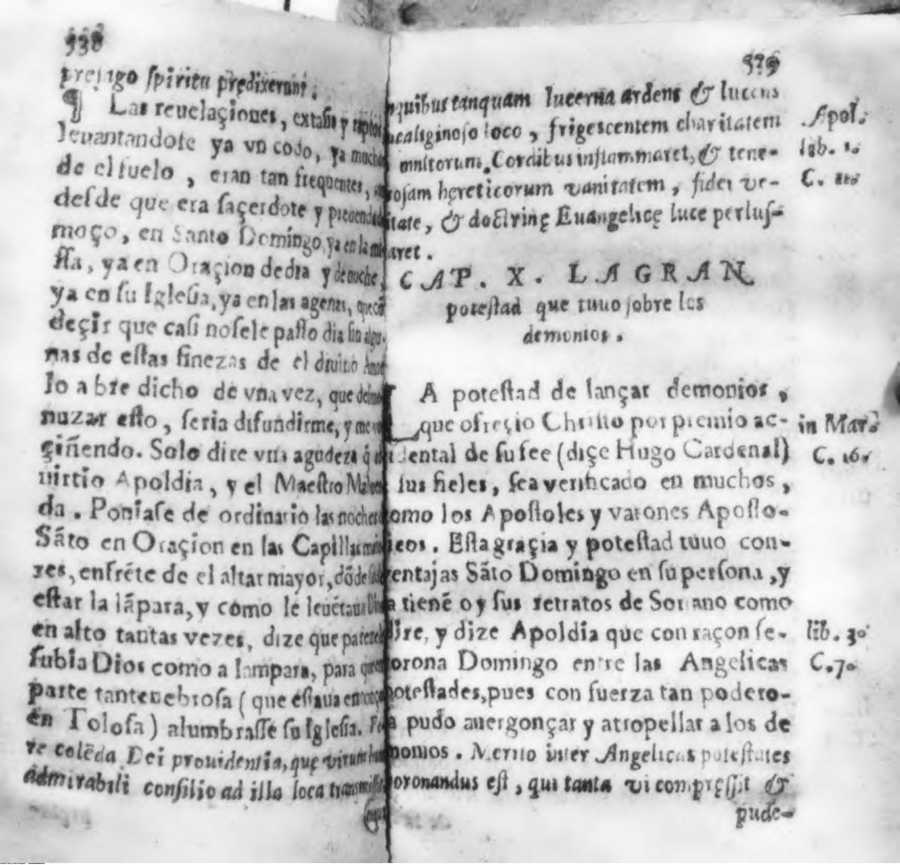 538
spiritu prędixerunt.
¶ Las reuelaçiones, extasis y raptos
leuantandote ya vn codo, ya mucho
de el suelo, eran tan frequentes,
desde que era saçerdote y
moço, en Santo Domingo, ya en la
ssa, ya en Oraçion de dia y de noche,
ya en su Iglesia, ya en las agenas, que
deçir que casi no se le passo dia sin algu-
nas de estas finezas de el diuino Amor
lo abre dicho de vna vez, que
nuzar esto, seria difundirme, y me voy
çiñendo. Solo dire vna agudeza q̃
uirtio Apoldia, y el Maestro
da. Poniase de ordinario las noches
Sãto en Oraçion en las Capillas
res, enfrẽte de el altar mayor, dõde
estar la lãpara, y como le leuãtaua Dios
en alto tantas vezes, dize que pareçe
subia Dios como a lampara, para que
parte tan tenebrosa (que estaua entonçes
en Tolosa) alumbrasse su Iglesia.
re colẽda Dei prouidentia, quę virum
admirabili consilio ad illa loca
539
quibus tanquam lucerna ardens & lucens
caliginoso loco, frigescentem charitatem
omnitorum. Cordibus inflammaret, & tene-
rosam hęreticorum vanitatem, fidei ve-
itate, & doctrinę Euangelicę luce perlus-
aret.
CAP. X. LA GRAN
potestad que tuuo sobre los
demonios.
LA potestad de lançar demonios,
que ofreçio Christo por premio ac-
idental de su fee (diçe Hugo Cardenal)
sus fieles, sea verificado en muchos,
omo los Apostoles y varones Aposto-
icos. Esta graçia y potestad tuuo con
ventajas Sãto Domingo en su persona, y
a tienẽ oy sus retratos de Soriano como
dire, y dize Apoldia que con raçon se
orona Domingo entre las Angelicas
potestades, pues con fuerza tan podero-
a pudo auergonçar y atropellar a los de
monios. Merito inter Angelicas potestates
oronandus est, qui tanta vi compressit &
pude-
Apol.
lib. 1.
C.
in Mar.
C. 16.
lib. 3.
C. 7.